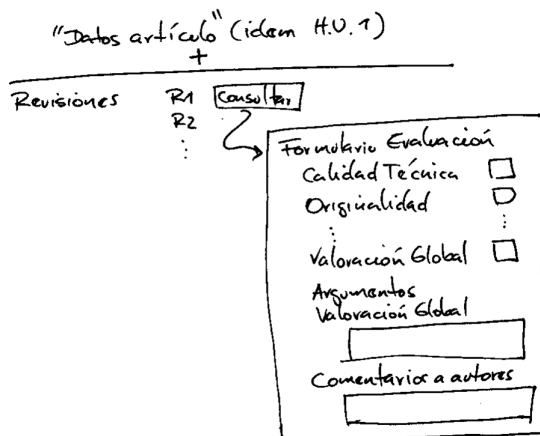 "Datos artículo" (idem H.U.1)
+
Revisiones R1 Consultar
R2
⋮
Formulario Evaluación
Calidad Técnica
Originalidad
⋮
Valoración Global
Argumentos
Valoración Global
Comentarios a autores